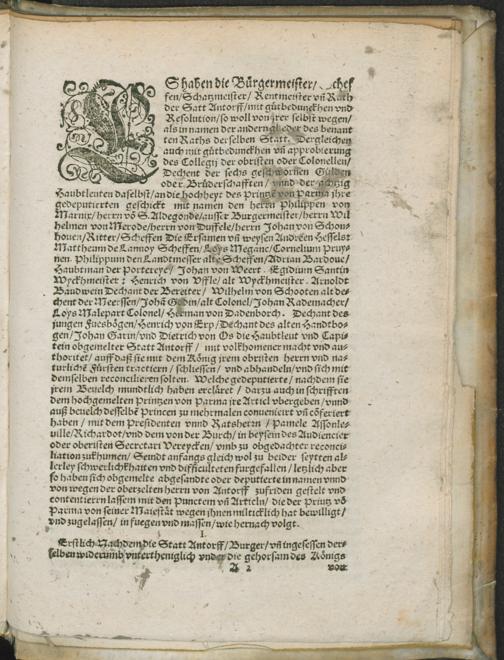 ES haben die Bürgermeister/ Schef
fen/Schatzmeister/ Rentmeister vñ Rath
der Satt Antorff/mit gůtbedunckhen vnd
Resolution/so woll von jrer selbst wegen/
als in namen der andern glieder des benant
ten Raths derselben Statt. Dergleichen
auch mit gůtbedunckhen vñ approbierung
des Collegij der obristen oder Colonellen/
Dechent der sechs geschwornen Gůlden
oder Brüderschafften/ vnnd der achtzig
Haubtleuten daselbst/an die hochheyt des Printzē von Parma jhre
gedeputierten geschickt mit namen den herrn Philippen von
Marnix/herrn vō S. Aldegonde/ausser Burgermeister/herrn Wil
helmen von Merode/herrn von Duffele/herrn Johan von Schon-
houen/Ritter/Scheffen Die Ersamen vñ weysen Andreen Hesselst
Mattheum de Lannoy Scheffen/Loys Meganc/Cornelium Pruy-
nen. Philippum den Landtmesser alte Scheffen/Adrian Bardoue/
Haubtman der Portereye/ Johan von Weert. Egidium Santin
Wyckhmeister: Henrich von Vffle/alt Wyckmeister. Arnoldt
Baudwein Dechant der Bereiter/ Wilhelm von Schooten alt de-
chent der Meerssen/Johā Godin/alt Colonel/Johan Rademacher/
Loys Malepart Colonel/Herman von Dadenborch. Dechant des
jungen Fuesbögen/Henrich von Erp/Dechant des alten Handtbo-
gen/Johan Garin/vnd Dietrich von Os die Haubtleut vnd Capi-
tein obgemelter Statt Antorff/ mit volkhomener macht vnd au-
thoritet/auff daß sie mit dem König jrem obristen herrn vnd na-
turlichē Fürsten tractiern/schliessen/ vnd abhandeln/vnd sich mit
demselben reconcilieren solten. Welche gedeputierte/nachdem sie
jrem beuelch mundtlich haben erclåret/ darzu auch in schrifften
dem hochgemelten Printzen von Parma jre Articl vbergeben/vnnd
auß beuelch desselbē Princen zu mehrmalen conuenieirt vñ cōferiert
haben/ mit dem Presidenten vnnd Ratsherrn/ Pamele Assonle-
uille/Richardot/vnd dem von der Burch/in beysein des Audiencier
oder obristen Secretari Vereycken/vmb zu obgedachter reconci-
liation zukhumen/ Seindt anfangs gleich wol zu beider seytten al-
lerley schwerlichkhaiten vnd difficulteten furgefallen/letzlich aber
so haben sich obgemelte abgesandte oder deputierte in namen vnnd
von wegen der oberzelten herrn von Antorff zufriden gestelt vnd
contentiern lassem mit den Punctem vñ Articln/ die der Printz vō
Parma von seiner Maieståt wegen jhnen milticklich hat bewilligt/
vnd zugelassen/ in fuegen vnd massen/wie hernach volgt.
I.
Erstlich Nachdem die Statt Antorff/Burger/vñ ingesessen der-
selben widerumb vntertheniglich vnder die gehorsam des Königs
A 2 von